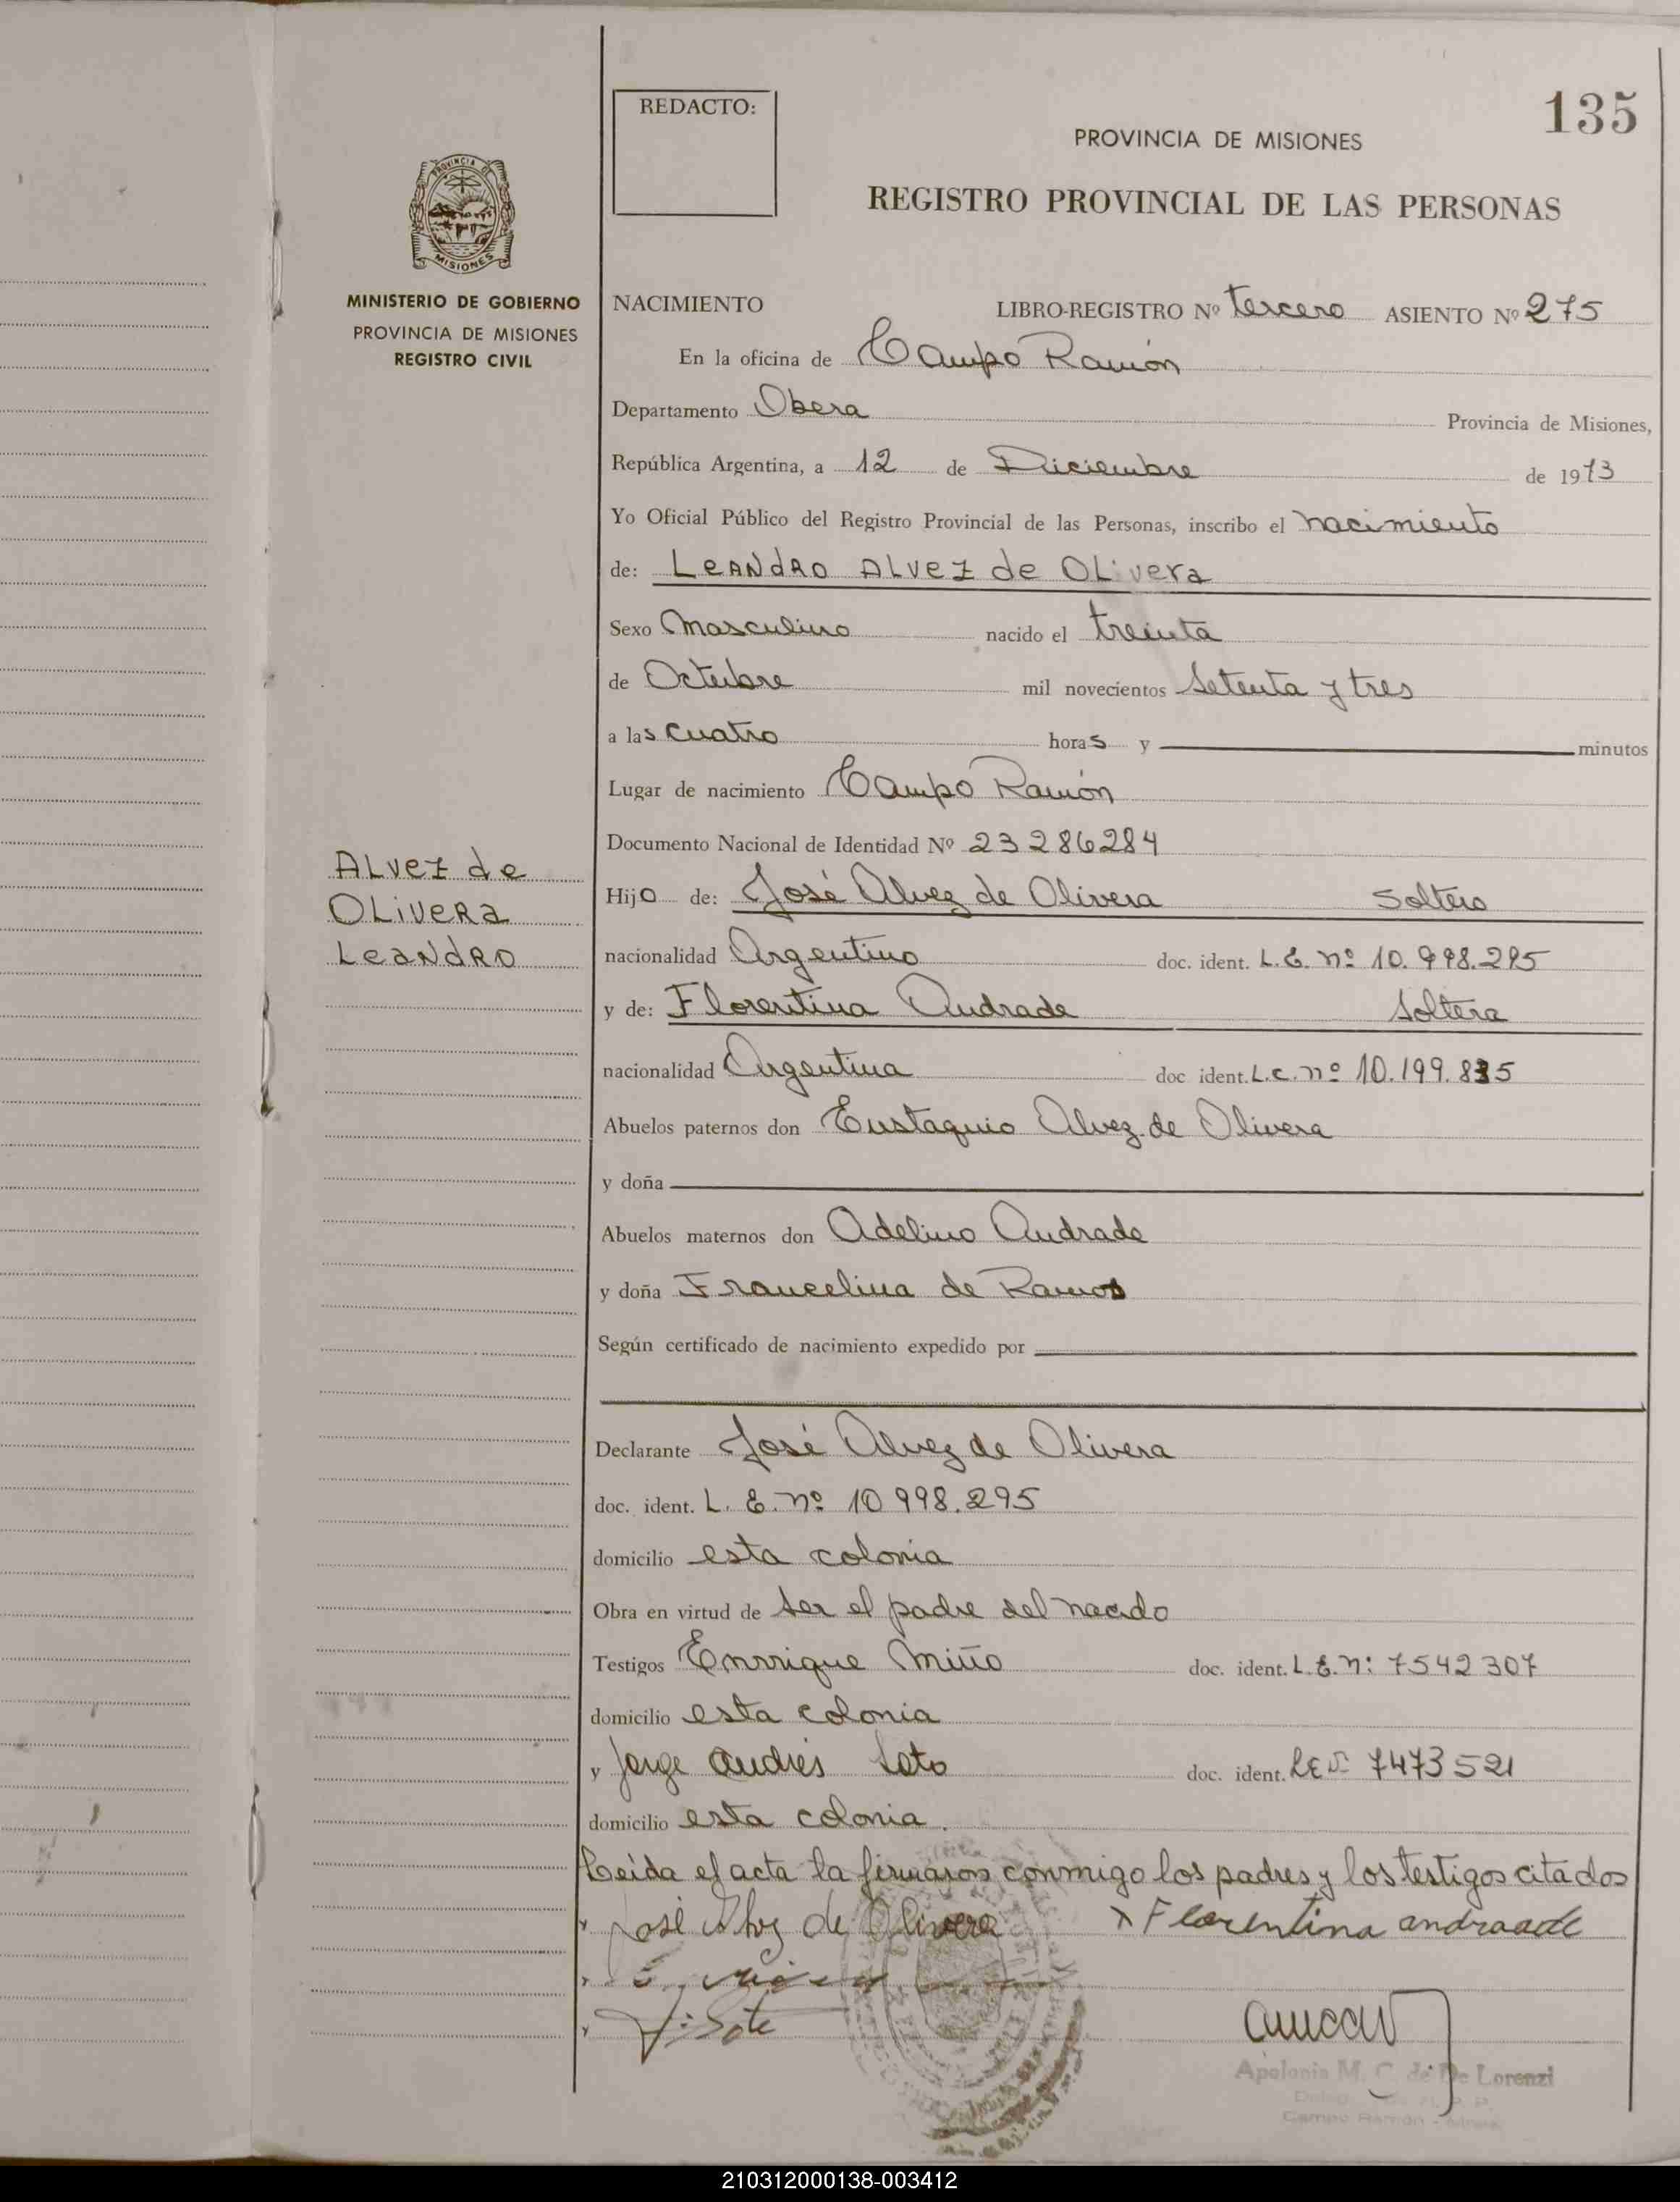 135
REDACTO:
PROVINCIA DE MISIONES
REGISTRO PROVINCIAL DE LAS PERSONAS
PROVINCIA D
MISIONES
MINISTERIO DE GOBIERNO
PROVINCIA DE MISIONES
REGISTRO CIVIL
NACIMIENTO LIBRO-REGISTRO Nº tercero ASIENTO Nº 275
En la oficina de Campo Ramón
Departamento Obera Provincia de Misiones,
República Argentina, a 12 de Diciembre de 1973
Yo Oficial Público del Registro Provincial de las Personas, inscribo el nacimiento
de: LeANdRO ALVEZ de OLivera
Sexo Masculino nacido el treinta
de Octubre mil novecientos Setenta y tres
a las cuatro horas y minutos
Lugar de nacimiento Campo Ramón
Documento Nacional de Identidad Nº 23286284
ALVEZ de
OLiVERa
LeaNdRO
Hijo de: José Alvez de Olivera Soltero
nacionalidad Argentino doc. ident. L.E. nº 10.998.295
y de: Florentina Andrade Soltera
nacionalidad Argentina doc ident. L.C. nº 10.199.835
Abuelos paternos don Eustaquio Alvez de Olivera
y doña
Abuelos maternos don Adelino Andrade
y doña Francelina de Ramos
Según certificado de nacimiento expedido por
Declarante José Alvez de Olivera
doc. ident. L. E. nº 10 998.295
domicilio esta colonia
Obra en virtud de ser el padre del nacido
Testigos Enrrique Miño doc. ident. L.E. n: 7542307
domicilio esta colonia
y Jorge Andrés Soto doc. ident. LE Nº 7473521
domicilio esta colonia.
Leída el acta la firmaron conmigo los padres y los testigos citados
José Alvez de Olivera x Florentina andraade
J. Soto
Apolonia M. C. de De Lorenzi
Campo Ramón
210312000138-003412